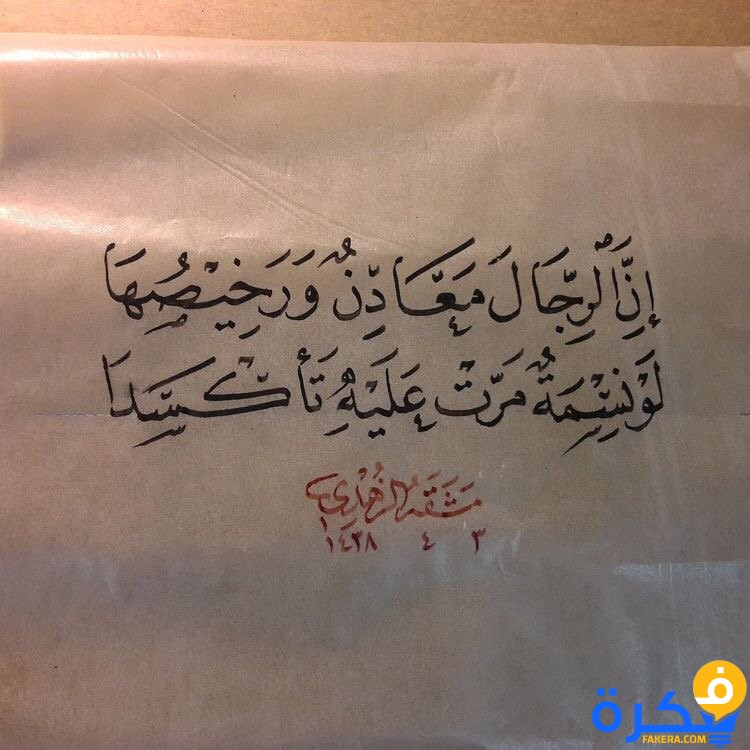 إِنَّ الرِّجَالَ مَعَادِنٌ وَرَخِيْصُهَا
لَوْ نِسْمَةٌ مَرَّتْ عَلَيْهِ تَأَكْسَدَا
مَشَقَهُ الزُّهْدِي
٣ ٤ ١٤٣٨
فكرة
FAKERA.COM